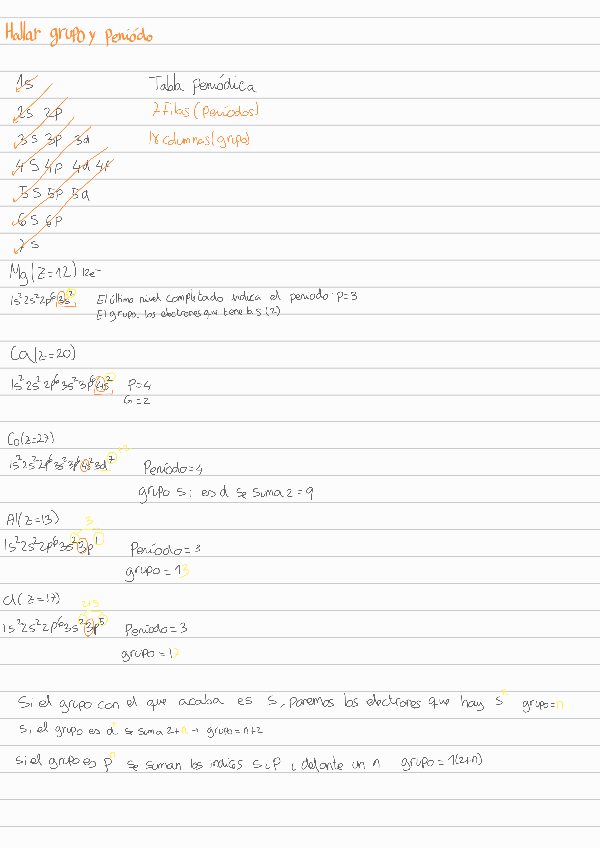 Hallar grupo y periódo
1s
Tabla Periódica
2s 2p
7 Filas (Periódos)
3s 3p 3d
18 columnas (grupo)
4s 4p 4d 4f
5s 5p 5d
6s 6p
7s
Mg (Z=12) 12e⁻
1s² 2s² 2p⁶ 3s²
El último nivel completado indica el periodo: P=3
El grupo, los electrones que tiene la s (2)
Ca (z=20)
1s² 2s² 2p⁶ 3s² 3p⁶ 4s² P=4
G=2
Co (z=27)
1s² 2s² 2p⁶ 3s² 3p⁶ 4s² 3d⁷ Periódo=4
grupo si es d se suma 2 = 9
Al (z=13)
3
1s² 2s² 2p⁶ 3s² 3p¹ Periódo=3
grupo = 13
Cl (z=17)
1s² 2s² 2p⁶ 3s² 3p⁵ Periódo=3
Si el grupo con el que acaba es s, ponemos los electrones que hay sⁿ grupo=n
si el grupo es dⁿ se suma 2+n → grupo=n+2
si el grupo es pⁿ se suman los indices s i P i delante un n grupo=1(2+n)